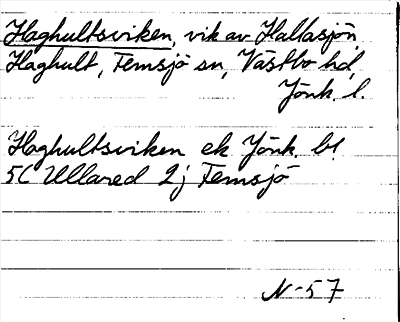 Haghultsviken, vik av Hallasjön,
Haghult, Femsjö sn, Västbo hd,
Jönk. l.
Haghultsviken ek Jönk. bl.
5C Ullared 2j Femsjö
N-57